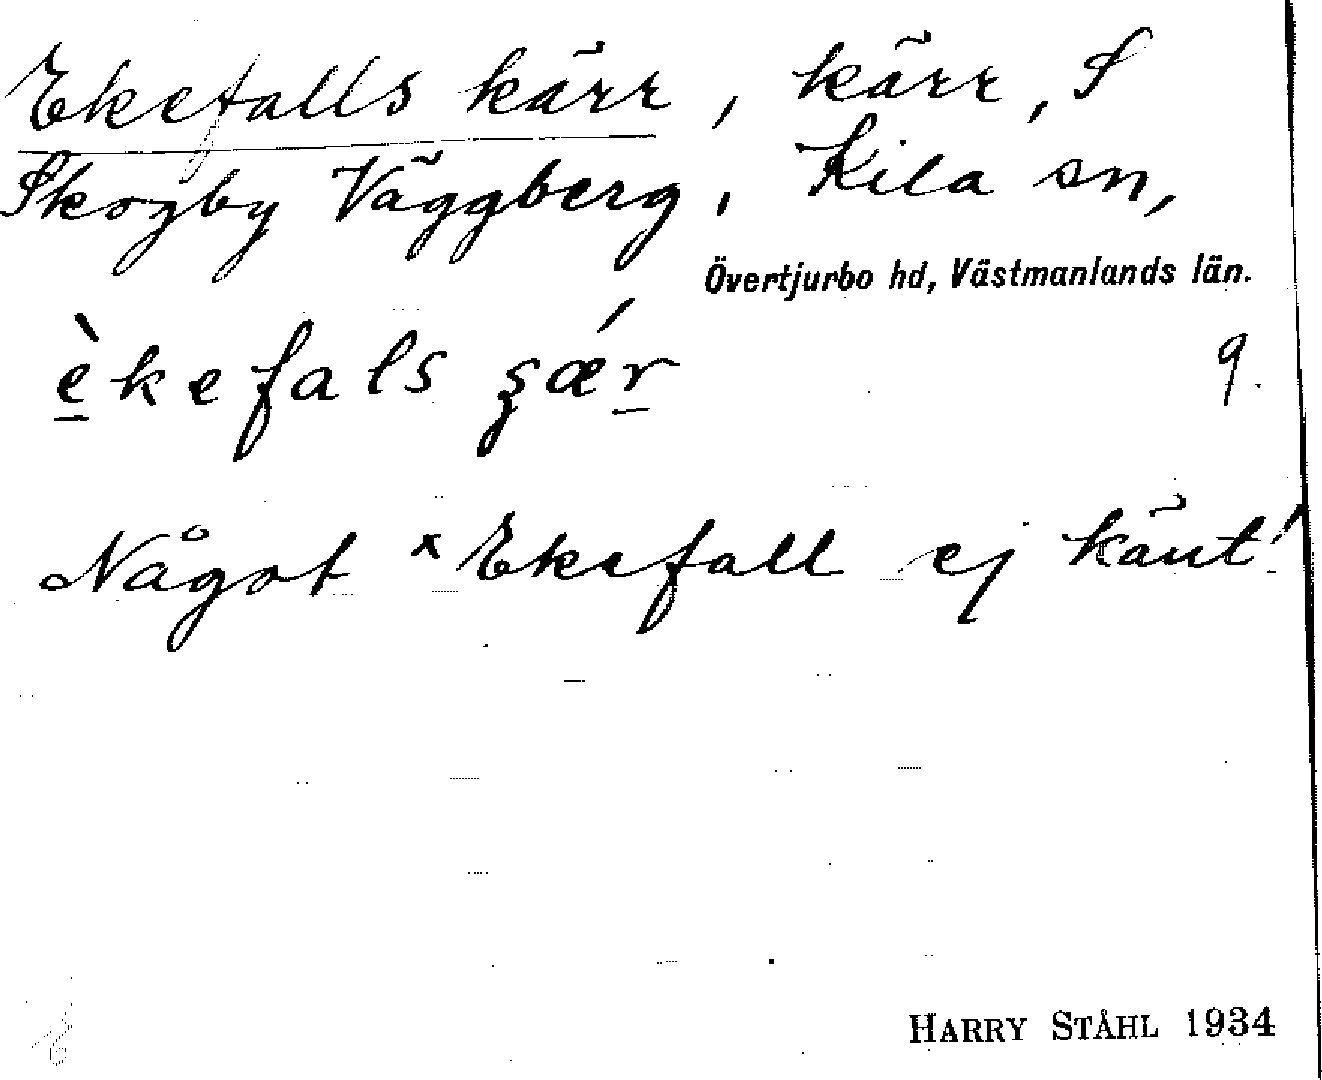 Ekefalls kärr, kärr, S
Skogby Väggberg, Kila sn,
Övertjurbo hd, Västmanlands län.
èkefals ʂǽr
9.
Något ˣEkefall ej känt!
HARRY STÅHL 1934